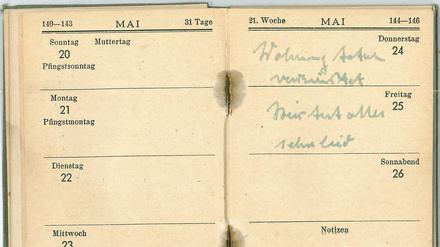 140—143 MAI 31 Tage
Sonntag Muttertag
20
Pfingstsonntag
Montag
21
Pfingstmontag
Dienstag
22
Mittwoch
23
21. Woche MAI 144—146
Donnerstag
24
Wohnung total
verwüstet
Freitag
25
Mir tut alles
sehr leid
Sonnabend
26
Notizen